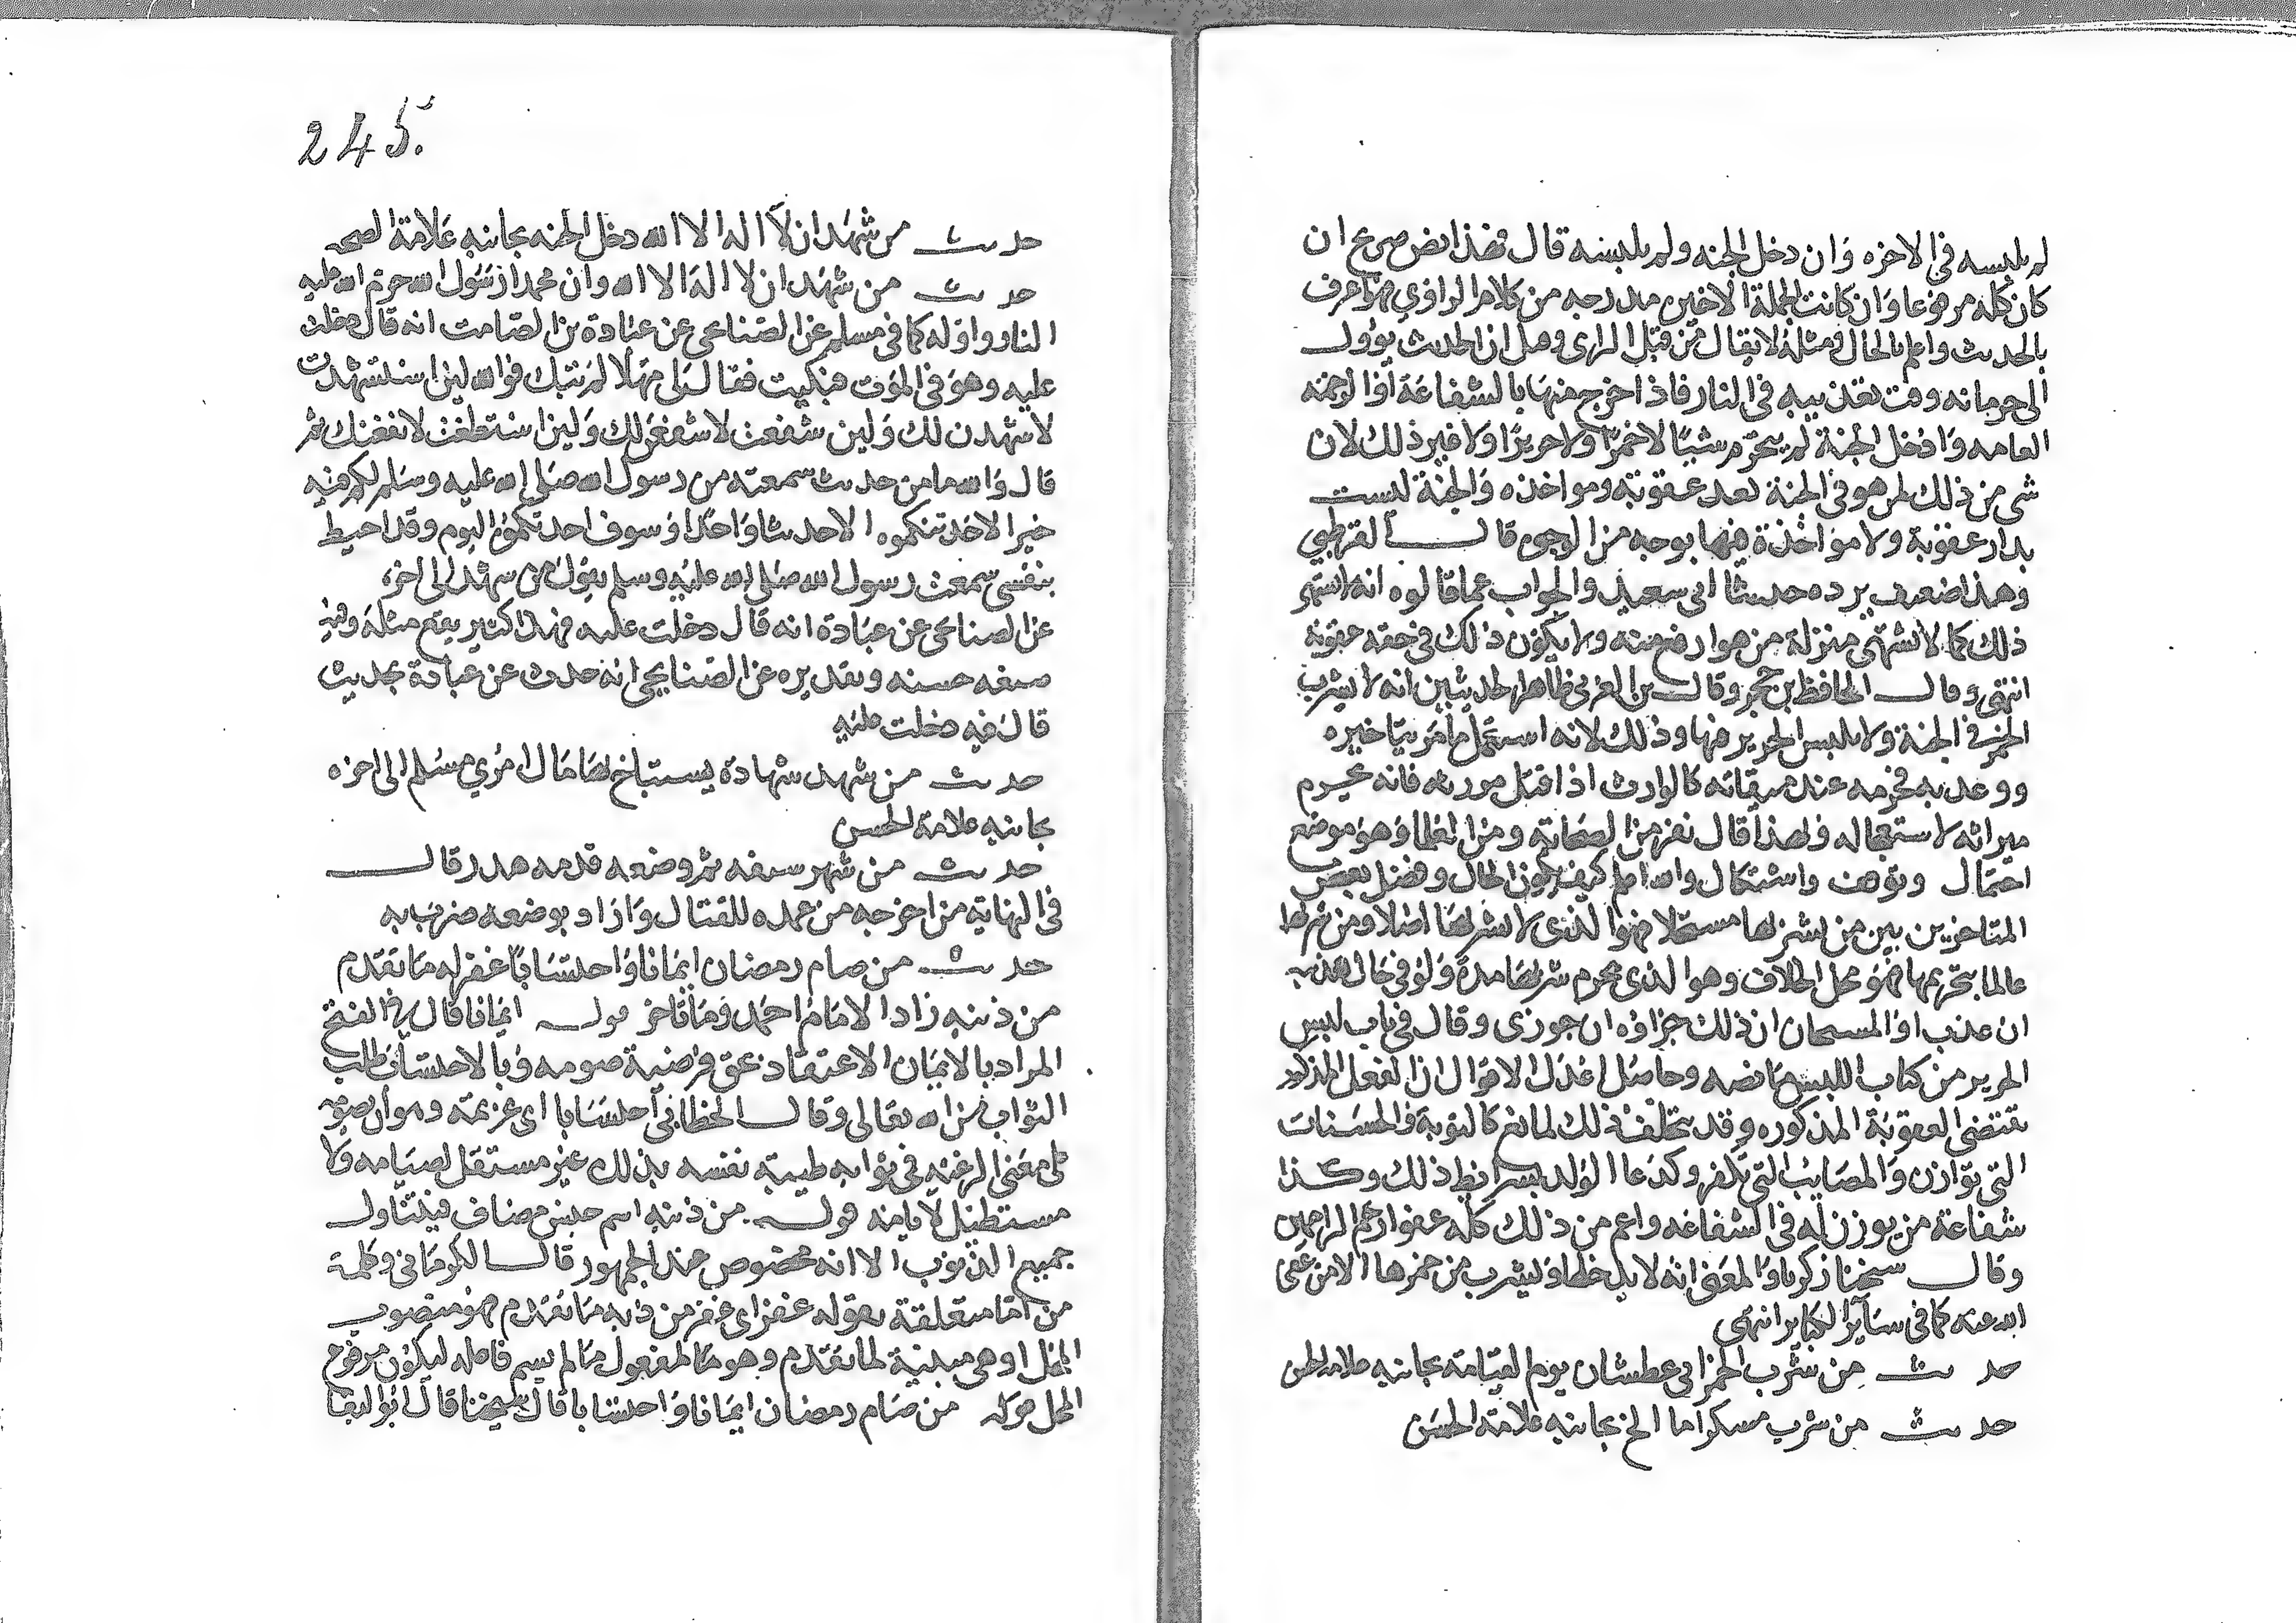 لم يلبسه في الاخره وان دخل الجنه ولم يلبسه قال فهذا نص صريح ان
كان كله مرفوعا وان كانت الجملة الاخيره مدرجه من كلام الراوي فهو اعرف
بالحديث واعلم بالحال ومثله لا يقال من قبل الراى وهل ان الحديث يؤول
الى حرمانه وقت تعذيبه في النار فاذا خرج منها بالشفاعة او الرحمه
العامه وادخل الجنة لم يحرم شيئا لا خمرا ولا حريرا ولا غير ذلك لان
شى من ذلك لمن هو في الجنة بعد عقوبة ومواخذه والجنة ليست
بدار عقوبة ولا مواخذة فيها بوجه من الوجوه قال القرطبي
وهذا ضعيف يرده حديث ابى سعيد والجواب عما قالوه انه لا يشتهى
ذلك كما لا يشتهى منزلة من هو ارفع منه ولا يكون ذلك في حقه عقوبة
انتهى وقال الحافظ بن حجر وقال بن العربي ظاهر الحديثين انه لا يشرب
الخمر في الجنة ولا يلبس الحرير فيها وذلك لانه استعجل ما امر بتاخيره
ووعد به فحرمه عند ميقاته كالوارث اذا قتل مورثه فانه يحرم
ميراثه لاستعجاله ولهذا قال نفر من الصحابة ومن العلما وهو موضع
احتمال وتوقف واشكال والله اعلم كيف يكون الحال وفصل بعض
المتاخرين بين من يشربها مستحلا فهو الذى لا يشربها اصلا ومن شربها
عالما بتحريمها فهو محل الخلاف وهو الذى يحرم شربها مدة ولو في حال تعذيبه
ان عذب او المستحق ان ذلك جزاؤه ان جوزى وقال في باب لبس
الحرير من كتاب اللبس ما نصه وحاصل اعدل الاقوال ان الفعل المذكور
يقتضى العقوبة المذكوره وقد يتخلف ذلك لمانع كالتوبة والحسنات
التي توازن والمصايب التي تكفر وكدعا الولد بشرايط ذلك وكذا
شفاعة من يوذن له في الشفاعه واعم من ذلك كله عفو ارحم الراحمين
وقال شيخنا زكريا والمعنى انه لا يدخلها وليشرب من خمرها الا من عفى
الله عنه كما في ساير الكباير انتهى
حديث من شرب الخمر اتى عطشان يوم القيامة بجانبه علامة الحسن
حديث من شرب مسكرا ما الخ بجانبه علامة الحسن
245
حديث من شهد ان لا اله الا الله دخل الجنه بجانبه علامة الصحه
حديث من شهد ان لا اله الا الله وان محمدا رسول الله حرم الله عليه
النار واوله كما في مسلم عن الصنابحى عن عبادة بن الصامت انه قال دخلت
عليه وهو في الموت فبكيت فقال لى مهلا لم تبك فوالله لين استشهدت
لاشهدن لك ولين شفعت لاشفعن لك ولين استطعت لانفعنك ثم
قال والله ما من حديث سمعته من رسول الله صلى الله عليه وسلم لكم فيه
خير الا حدثتكموه الا حديثا واحدا وسوف احدثكموه اليوم وقد احيط
بنفسى سمعت رسول الله صلى الله عليه وسلم يقول من شهد الى اخره
عن الصنابحى عن عبادة انه قال دخلت عليه فهذا كثير يقع مثله وفيه
صنعه حسنه وتقديره عن الصنابحى انه حدث عن عبادة بحديث
قال فيه دخلت عليه
حديث من شهد شهادة يستباح بها مال امرى مسلم الى اخره
بجانبه علامة الحسن
حديث من شهر سيفه ثم وضعه فدمه هدر قال
في النهاية من اخرجه من غمده للقتال واراد بوضعه ضرب به
حديث من صام رمضان ايمانا واحتسابا غفر له ما تقدم
من ذنبه زاد الامام احمد وما تاخر قوله ايمانا قال في الفتح
المراد بالايمان الاعتقاد بحق فرضية صومه وبالاحتساب طلب
الثواب من الله تعالى وقال الخطابي احتسابا اى عزيمة وهو ان يصومه
على معنى الرغبه في ثوابه طيبة نفسه بذلك غير مستقل لصيامه ولا
مستطيل لايامه قوله من ذنبه اسم جنس مضاف فيتناول
جميع الذنوب الا انه مخصوص عند الجمهور قال الكرماني وكلمة
من اما متعلقة بقوله غفر اى غفر من ذنبه ما تقدم فهو منصوب
المحل او هى مبنية لما تقدم وهو مفعول ما لم يسم فاعله ليكون مرفوع
المحل قوله من صام رمضان ايمانا واحتسابا قال شيخنا قال ابو البقا